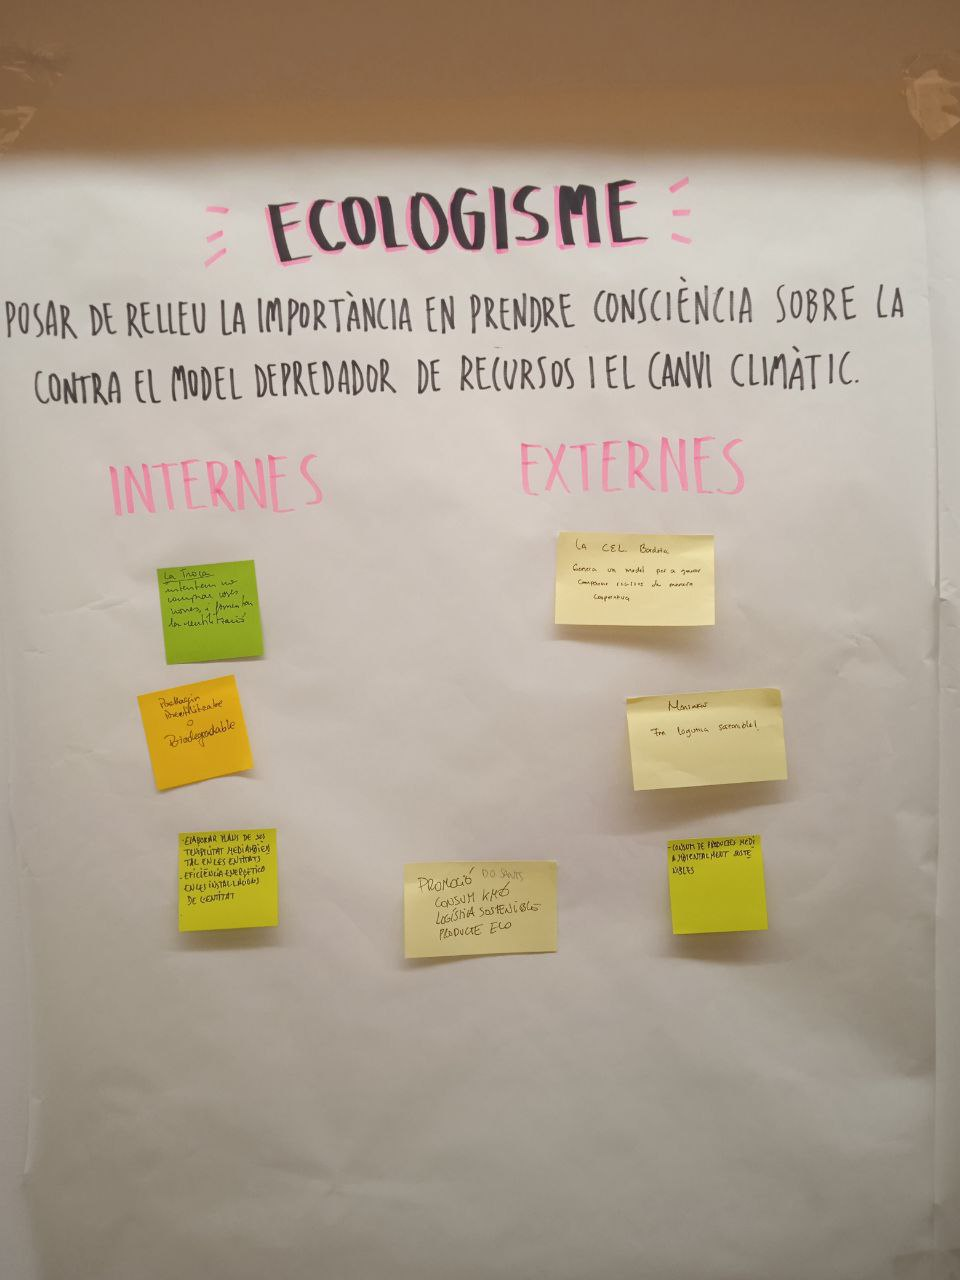 ECOLOGISME
POSAR DE RELLEU LA IMPORTÀNCIA EN PRENDRE CONSCIÈNCIA SOBRE LA
CONTRA EL MODEL DEPREDADOR DE RECURSOS I EL CANVI CLIMÀTIC.
INTERNES
EXTERNES
La Troca
intentem no
comprar coses
noves, i fomentar
la reutilització
o
Biodegradable
- ELABORAR PLANS DE SOS
TENIBILITAT MEDIAMBIEN
TAL EN LES ENTITATS
- EFICIÈNCIA ENERGÈTICA
EN LES INSTAL·LACIONS
DE L'ENTITAT
PROMOCIÓ DO SANTS,
CONSUM KM0
LOGÍSTICA SOSTENIBLE
PRODUCTE ECO
LA C.E.L. Bordeta
Genera un model per a
de manera
cooperativa
Mensakas
Fem logística sostenible!
- CONSUM DE PRODUCTES MEDI
AMBIENTALMENT SOSTE
NIBLES